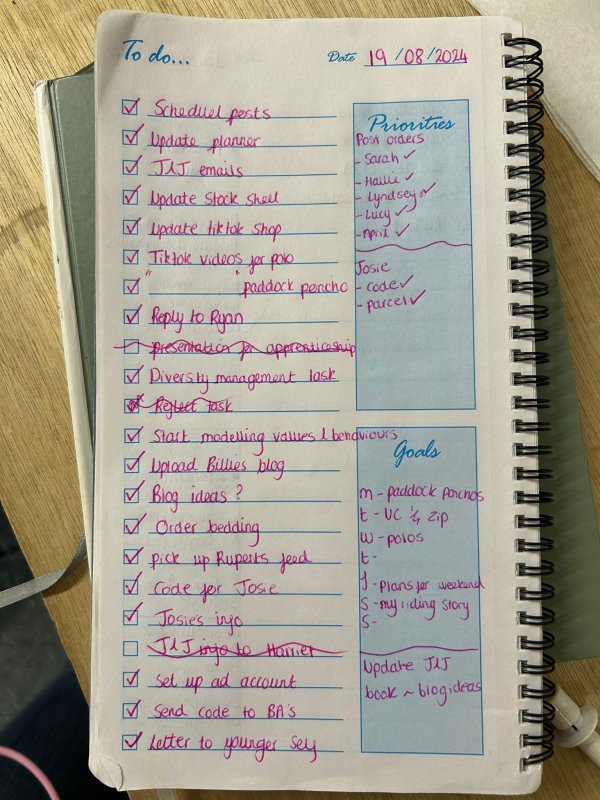 To do...
Date 19/08/2024
Scheduel posts
Update planner
J&J emails
Update stock sheet
Update tiktok shop
Tiktok videos for polo
" " paddock poncho
Reply to Ryan
Presentation for apprenticeship
Diversity management task
Reflect task
Start modelling values & behaviours
Upload Billies blog
Blog ideas?
Order bedding
Pick up Ruperts feed
Code for Josie
Josie's info
J&J info to Harriet
Set up ad account
Send code to BA's
Letter to younger self
Priorities
Post orders
- Sarah ✓
- Hallie ✓
- Lyndsey ✓
- Lucy ✓
- April ✓
Josie
- code ✓
- parcel ✓
Goals
m - paddock ponchos
t - UC 1/4 zip
w - polos
t -
f - plans for weekend
S - my riding story
S -
Update J&J
book ~ blog ideas